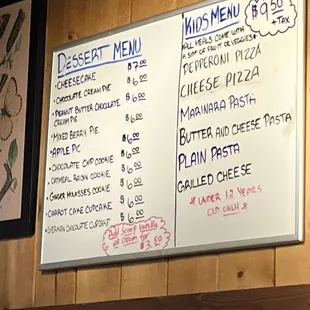 DESSERT MENU
·CHEESECAKE $7.00
·CHOCOLATE CREAM PIE $6.00
·PEANUT BUTTER CHOCOLATE $6.00
CREAM PIE
·MIXED BERRY PIE $6.00
·APPLE PIC $6.00
·CHOCOLATE CHIP COOKIE $6.00
·OATMEAL RAISIN COOKIE $6.00
·GINGER MOLASSES COOKIE $6.00
·CARROT CAKE CUPCAKE $6.00
·GERMAN CHOCOLATE $6.00
Add Scoop Vanilla
ice cream for
$3.50
KIDS MENU
$9.50
+TAX
ALL MEALS COME WITH
A SIDE OF FRUIT OR VEGGIES
PEPPERONI PIZZA
CHEESE PIZZA
MARINARA PASTA
BUTTER AND CHEESE PASTA
PLAIN PASTA
GRILLED CHEESE
* UNDER 12 YEARS
OLD ONLY *